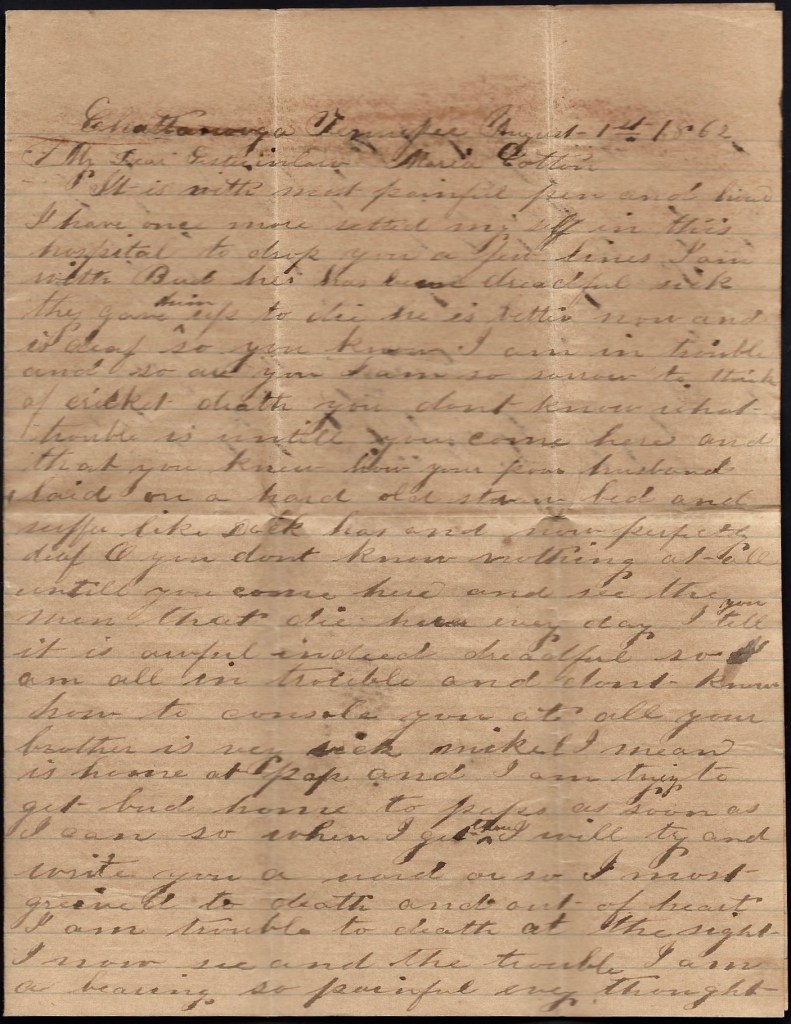 Chattanooga Tennessee August 1st 1862
My Dear Sisterinlaw Maria Cotton
It is with most painful pen and
I have once more setted my self in this
hospital to drop you a few lines I am
with Bud he has been dreadful sick
they gave him up to die he is better now and
is deaf so you know I am in trouble
and so are you I am so sorrow to think
of cricket death you dont know what
trouble is untill you come here and
that you knew how your poor husband
laid on a hard old straw bed and
suffer like has and now perfectly
deaf O you dont know nothing at all
untill you come here and see the
men that die here every day I tell you
it is awful indeed dreadful so I
am all in trouble and dont know
how to console you at all your
brother is very sick mikel I mean
is home at pap and I am trying to
get bud home to paps as soon as
I can so when I get there I will ty and
write you a word or so I most
greived to death and out of heart
I am trouble to death at the sight
I now see and the trouble I am
a bearing so painful every thought